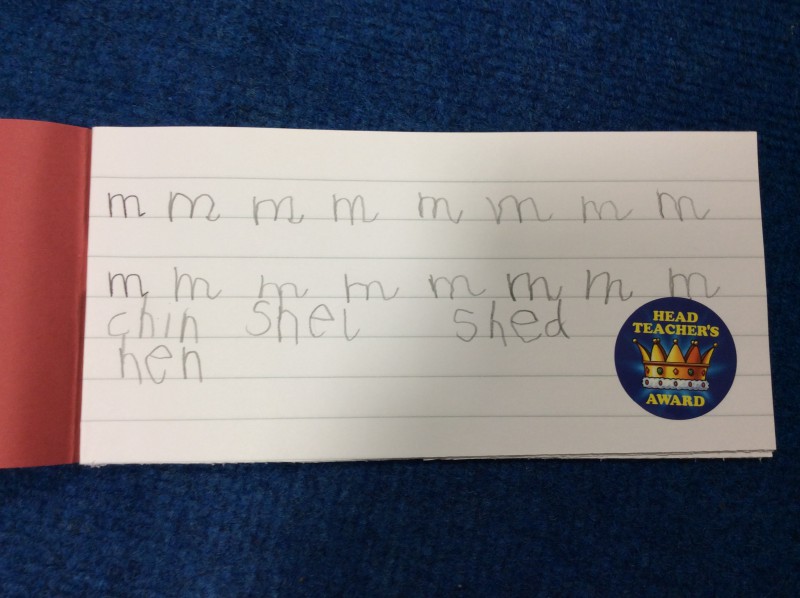 m m m m m m m m
m m m m m m m m
chin shel shed
hen
HEAD
TEACHER'S
AWARD